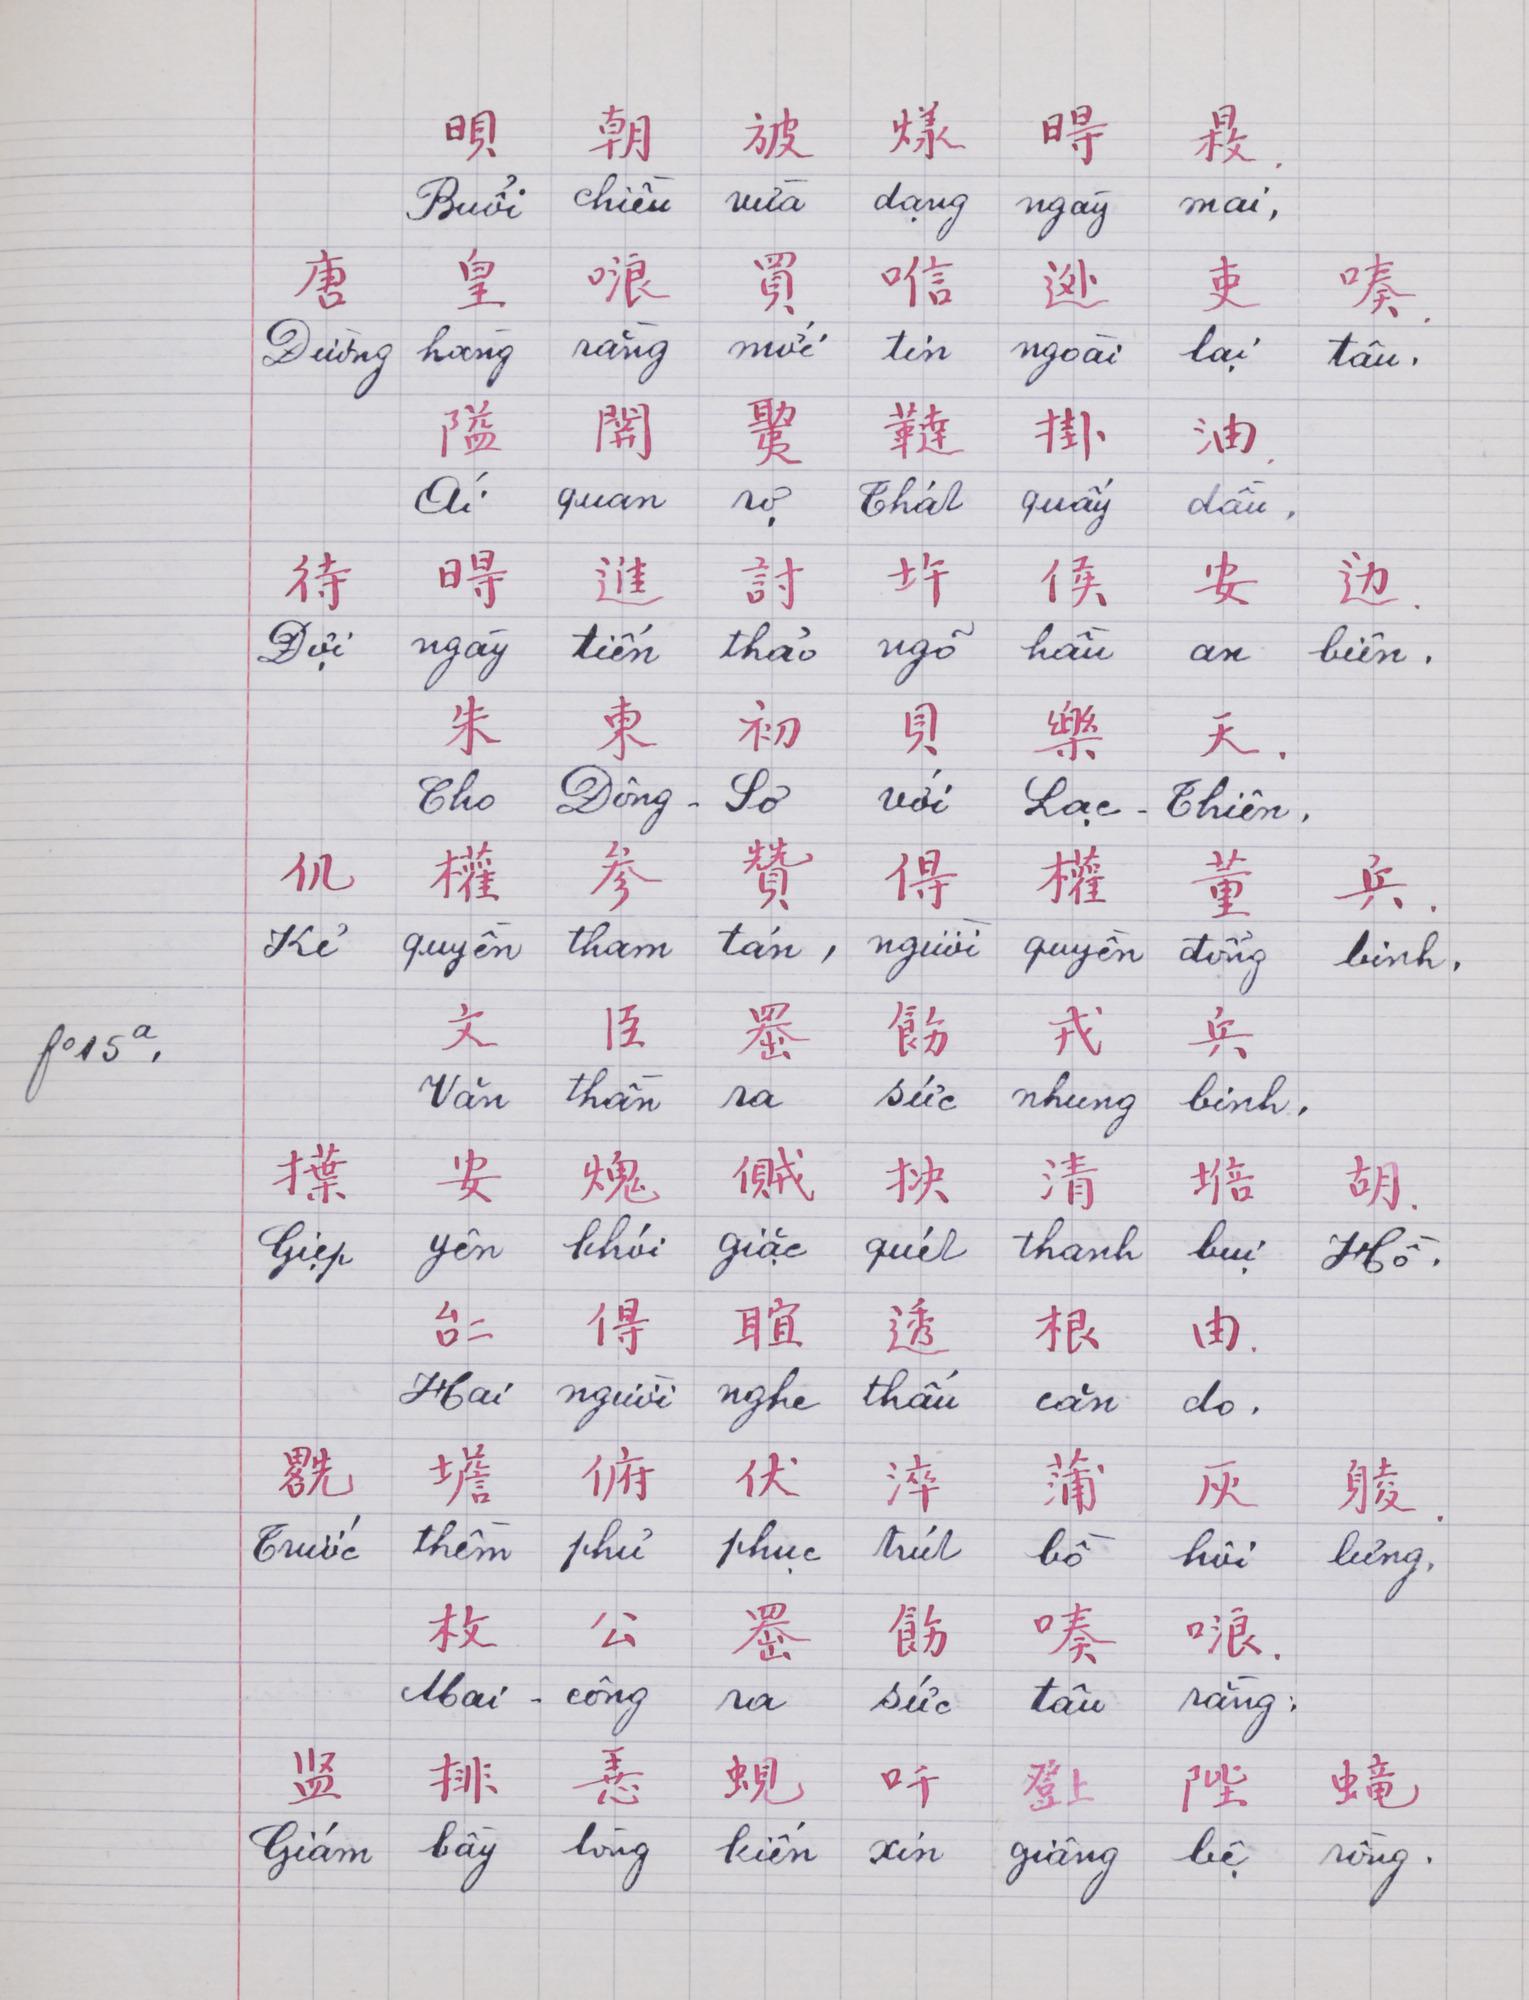 唄 朝 𣃣 𤉜 𣈜 𣈕.
Buổi chiều vừa dạng ngày mai,
唐 皇 㖫 買 㗂 逊 吏 唪.
Đường hoàng rằng mới tin ngoài lại tâu.
隘 關 䝨 韃 掛 油.
Ải quan rợ Thát quấy dầu,
待 𣈜 進 討 圬 侯 安 边.
Đợi ngày tiến thảo ngõ hầu an biên.
朱 東 初 貝 樂 天.
Cho Đông-Sơ với Lạc-Thiên,
仉 權 參 贊 得 權 董 兵.
Kẻ quyền tham tán, người quyền đổng binh.
fº15ª.
文 臣 𠚢 飭 戎 兵
Văn thần ra sức nhung binh,
擛 安 𤌋 賊 抉 清 培 胡.
Giẹp yên khói giặc quét thanh bụi Hồ.
𠄩 得 𦖑 透 根 由.
Hai người nghe thấu căn do,
𠓀 墰 俯 伏 淬 蒲 灰 𨉞.
Trước thềm phủ phục trút bồ hôi lưng.
枚 公 𠚢 飭 唪 㖫.
Mai-công ra sức tâu rằng:
监 排 𢚸 蜆 吀 𨖲 陛 𧏵
Giám bầy lòng kiến xin giâng bệ rồng.